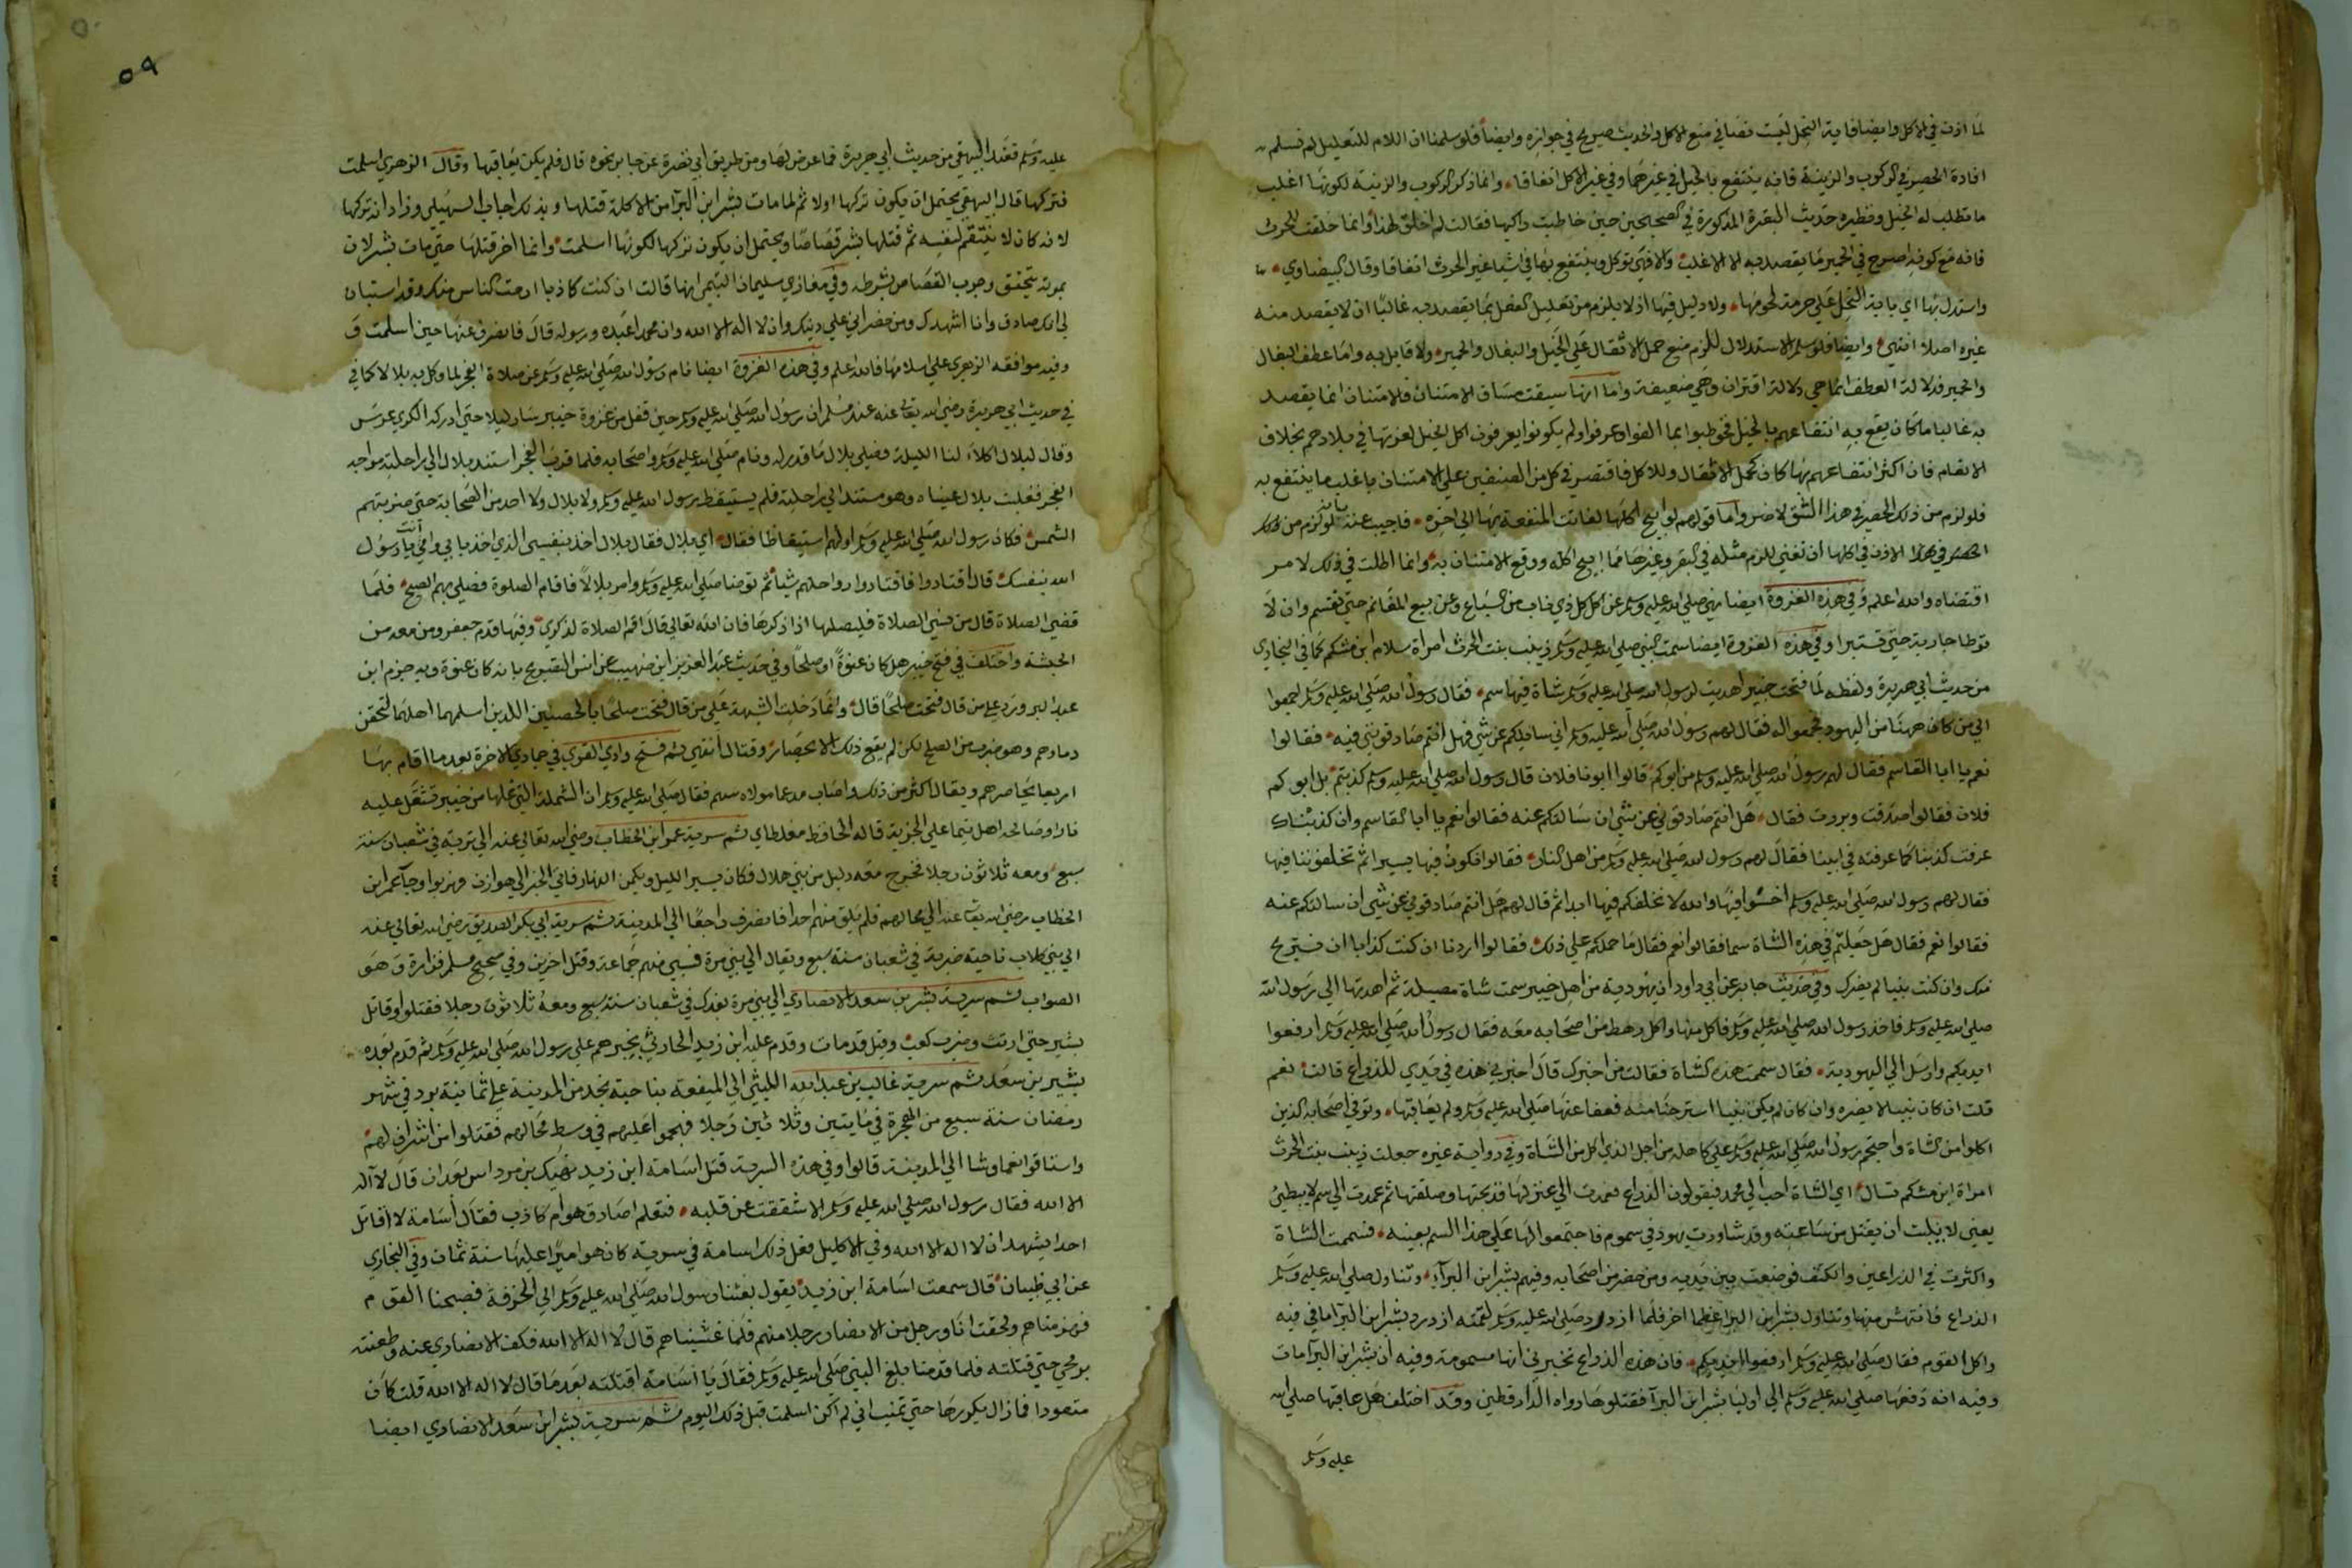 لما اذن في الاكل وايضا فاية النحل ليست نصا في منع الاكل والحديث صريح في جوازه وايضا فلو سلمنا ان اللام للتعليل لم نسلم
افادة الحصر في الركوب والزينة فانه ينتفع بالخيل في غيرهما وفي غير الاكل اتفاقا وانما ذكر الركوب والزينة لكونها اغلب
ما تطلب له الخيل ونظيره حديث البقرة المذكورة في الصحيحين حين خاطبت راكبها فقالت لم اخلق لهذا وانما خلقت للحرث
فانه مع كونه اصرح في الحصر ما يقصد به الا الاغلب والا فهي توكل وينتفع بها في اشيا غير الحرث اتفاقا وقال البيضاوي
واستدل بها اي باية النحل علي حرمة لحومها ولا دليل فيها اذ لا يلزم من تعليل الفعل بما يقصد به غالبا ان لا يقصد منه
غيره اصلا انتهي وايضا فلو سلم الاستدلال للزم منع حمل الاثقال علي الخيل والبغال والحمير ولا قايل به واما عطف البغال
والحمير فدلالة العطف انما هي دلالة اقتران وهي ضعيفة واما انها سيقت مساق الامتنان فالامتنان انما يقصد
به غالبا ما كان يقع به انتفاعهم بالخيل فخوطبوا بما الفوا وعرفوا ولم يكونوا يعرفون اكل الخيل لعزتها في بلادهم بخلاف
الانعام فان اكثر انتفاعهم بها كان لحمل الاثقال وللاكل فاقتصر في كل من الصنفين علي الامتنان باغلب ما ينتفع به
فلو لزم من ذلك الحصر في هذا الشق لاضر واما قولهم لو ابيح اكلها لفاتت المنفعة بها الي اخره فاجيب عنه بانه لو لزم من ذلك
الاذن في اكلها ان تفني للزم مثله في البقر وغيرها مما ابيح اكله ووقع الامتنان به وانما اطلت في ذلك لامر
اقتضاه والله اعلم وفي هذه الغزوة ايضا نهي صلي الله عليه وسلم عن اكل كل ذي ناب من السباع وعن بيع المغانم حتي تقسم وان لا
توطا جارية حتي تستبرا وفي هذه الغزوة ايضا سمت النبي صلي الله عليه وسلم زينب بنت الحرث امراة سلام ابن مشكم كما في البخاري
من حديث ابي هريرة ولفظه لما فتحت خيبر اهديت لرسول الله صلي الله عليه وسلم شاة فيها سم فقال رسول الله صلي الله عليه وسلم اجمعوا
الي من كان ههنا من اليهود فجمعوا له فقال لهم رسول الله صلي الله عليه وسلم اني سايلكم عن شي فهل انتم صادقوني فيه فقالوا
نعم يا ابا القاسم فقال لهم رسول الله صلي الله عليه وسلم من ابوكم قالوا ابونا فلان قال رسول الله صلي الله عليه وسلم كذبتم بل ابوكم
فلان فقالوا صدقت وبررت فقال هل انتم صادقوني عن شي ان سالتكم عنه فقالوا نعم يا ابا القاسم وان كذبناك
عرفت كذبنا كما عرفته في ابينا فقال لهم رسول الله صلي الله عليه وسلم من اهل النار فقالوا نكون فيها يسيرا ثم تخلفوننا فيها
فقال لهم رسول الله صلي الله عليه وسلم اخسئوا فيها والله لا نخلفكم فيها ابدا ثم قال لهم هل انتم صادقوني عن شي ان سالتكم عنه
فقالوا نعم فقال هل جعلتم في هذه الشاة سما فقالوا نعم فقال ما حملكم علي ذلك فقالوا اردنا ان كنت كذابا ان نستريح
منك وان كنت نبيا لم يضرك وفي حديث جابر عن ابي داود ان يهودية من اهل خيبر سمت شاة مصلية ثم اهدتها الي رسول الله
صلي الله عليه وسلم فاخذ رسول الله صلي الله عليه وسلم فاكل منها واكل رهط من اصحابه معه فقال رسول الله صلي الله عليه وسلم ارفعوا
ايديكم وارسل الي اليهودية فقال سممت هذه الشاة فقالت من اخبرك قال اخبرني هذه في يدي للذراع قالت نعم
قلت ان كان نبيا لا يضره وان كان لم يكن نبيا استرحنا منه فعفا عنها صلي الله عليه وسلم ولم يعاقبها وتوفي اصحابه الذين
اكلوا من الشاة واحتجم رسول الله صلي الله عليه وسلم علي كاهله من اجل الذي اكل من الشاة وفي رواية غيره جعلت زينب بنت الحرث
امراة ابن مشكم تسال اي الشاة احب الي محمد فيقولون الذراع فعمدت الي عنز لها فذبحتها وصلتها ثم عمدت الي سم لا يبطئ
يعني لا يلبث ان يقتل من ساعته وقد شاورت يهود في سموم فاجتمعوا لها علي هذا السم بعينه فسممت الشاة
واكثرت في الذراعين والكتف فوضعت بين يديه ومن حضر من اصحابه وفيهم بشر ابن البرآء وتناول صلي الله عليه وسلم
الذراع فانتهش منها وتناول بشر ابن البرا عظما اخر فلما ازدرد صلي الله عليه وسلم لقمته ازدرد بشر ابن البرا ما في فيه
واكل القوم فقال صلي الله عليه وسلم ارفعوا ايديكم فان هذه الذراع تخبرني انها مسمومة وفيه ان بشر ابن البرآ مات
وفيه انه دفعها صلي الله عليه وسلم الي اوليا بشر ابن البرآ فقتلوها رواه الدارقطني وقد اختلف هل عاقبها صلي الله
عليه وسلم
٥٩
عليه وسلم فعند البيهقي من حديث ابي هريرة فما عرض لها ومن طريق ابي نضرة عن جابر نحوه قال فلم يكن يعاقبها وقال الزهري اسلمت
فتركها قال البيهقي يحتمل ان يكون تركها اولا ثم لما مات بشر ابن البرآ من الاكلة قتلها وبذلك اجاب السهيلي وزاد انه تركها
لانه كان لا ينتقم لنفسه ثم قتلها ببشر قصاصا ويحتمل ان يكون تركها لكونها اسلمت وانما اخر قتلها حتي مات بشر لان
بموته يتحقق وجوب القصاص بشرطه وفي مغازي سليمان التيمي انها قالت ان كنت كاذبا ارحت الناس منك وقد استبان
لي انك صادق وانا اشهدك ومن حضر اني علي دينك وان لا اله الا الله وان محمدا عبده ورسوله قال فانصرف عنها حين اسلمت و
وفيه موافقة الزهري علي اسلامها فالله اعلم وفي هذه الغزوة ايضا نام رسول الله صلي الله عليه وسلم عن صلاة الفجر لما وكل به بلالا كما في
في حديث ابي هريرة رضي الله تعالي عنه عند مسلم ان رسول الله صلي الله عليه وسلم حين قفل من غزوة خيبر سار ليلا حتي ادركه الكري عرس
وقال لبلال اكلأ لنا الليلة فصلي بلال ما قدر له ونام صلي الله عليه وسلم واصحابه فلما قرب الفجر استند بلال الي راحلته مواجه
الفجر فغلبت بلال عيناه وهو مستند الي راحلته فلم يستيقظ رسول الله عليه وسلم ولا بلال ولا احد من الصحابة حتي ضربتهم
الشمس فكان رسول الله صلي الله عليه وسلم اولهم استيقاظا فقال اي بلال فقال بلال اخذ بنفسي الذي اخذ بابي وامي انت يا رسول
الله بنفسك قال اقتادوا فاقتادوا رواحلهم شيا ثم توضا صلي الله عليه وسلم وامر بلالا فاقام الصلوة فصلي بهم الصبح فلما
قضي الصلاة قال من نسي الصلاة فليصلها اذا ذكرها فان الله تعالي قال اقم الصلاة لذكري وفيها قدم جعفر ومن معه من
الحبشة واختلف في فتح خيبر هل كان عنوة او صلحا وفي حديث عبد العزيز ابن صهيب عن انس التصريح بانه كان عنوة وبه جزم ابن
عبد البر ورد علي من قال فتحت صلحا قال وانما دخلت الشبهة علي من قال فتحت صلحا بالحصنين اللذين اسلمهما اهلهما لحقن
دمايهم وهو ضرب من الصلح لكن لم يقع ذلك الا بحصار وقتال انتهي ثم فتح وادي القري في جمادي الاخرة بعد ما اقام بها
اربعا يحاصرهم ويقال اكثر من ذلك واصاب مدعما مولاه سهم فقال صلي الله عليه وسلم ان الشملة التي غلها من خيبر تشتعل عليه
نارا وصالحه اهل تيما علي الجزية قاله الحافظ مغلطاي ثم سرية عمر ابن الخطاب رضي الله تعالي عنه الي تربة في شعبان سنة
سبع ومعه ثلاثون رجلا فخرج معه دليل من بني هلال فكان يسير الليل ويكمن النهار فاتي الخبر الي هوازن فهربوا وجآ عمر ابن
الخطاب رضي الله تعالي عنه الي محالهم فلم يلق منهم احدا فانصرف راجعا الي المدينة ثم سرية ابي بكر الصديق رضي الله تعالي عنه
الي بني كلاب ناحية ضرية في شعبان سنة سبع ويقال الي بني مرة فسبي منهم جماعة وقتل اخرين وفي صحيح مسلم فزارة وهو
الصواب ثم سرية بشر بن سعد الانصاري الي بني مرة بفدك في شعبان سنة سبع ومعه ثلاثون رجلا فقتلوا وقاتل
بشير حتي ارتث وضرب كعبه وقيل قد مات وقدم علبة ابن زيد الحارثي بخبرهم علي رسول الله صلي الله عليه وسلم ثم قدم بعده
بشير بن سعد ثم سرية غالب بن عبد الله الليثي الي الميفعة بناحية نجد من المدينة علي ثمانية برد في شهر
رمضان سنة سبع من الهجرة في مايتين وثلاثين رجلا فهجموا عليهم في وسط محالهم فقتلوا من اشراف لهم
واستاقوا نعما وشا الي المدينة قالوا وفي هذه السرية قتل اسامة ابن زيد نهيك بن مرداس بعد ان قال لا آله
الا الله فقال رسول الله صلي الله عليه وسلم الا شققت عن قلبه فتعلم اصادق هو ام كاذب فقال اسامة لا اقاتل
احدا يشهد ان لا اله الا الله وفي الاكليل فعل ذلك اسامة في سرية كان هو اميرا عليها سنة ثمان وفي البخاري
عن ابي ظبيان قال سمعت اسامة ابن زيد يقول بعثنا رسول الله صلي الله عليه وسلم الي الحرقة فصبحنا القوم
فهزمناهم ولحقت انا ورجل من الانصار رجلا منهم فلما غشيناهم قال لا اله الا الله فكف الانصاري عنه وطعنته
برمحي حتي قتلته فلما قدمنا بلغ النبي صلي الله عليه وسلم فقال يا اسامة اقتلته بعد ما قال لا اله الا الله قلت كان
متعوذا فما زال يكررها حتي تمنيت اني لم اكن اسلمت قبل ذلك اليوم ثم سرية بشر ابن سعد الانصاري ايضا